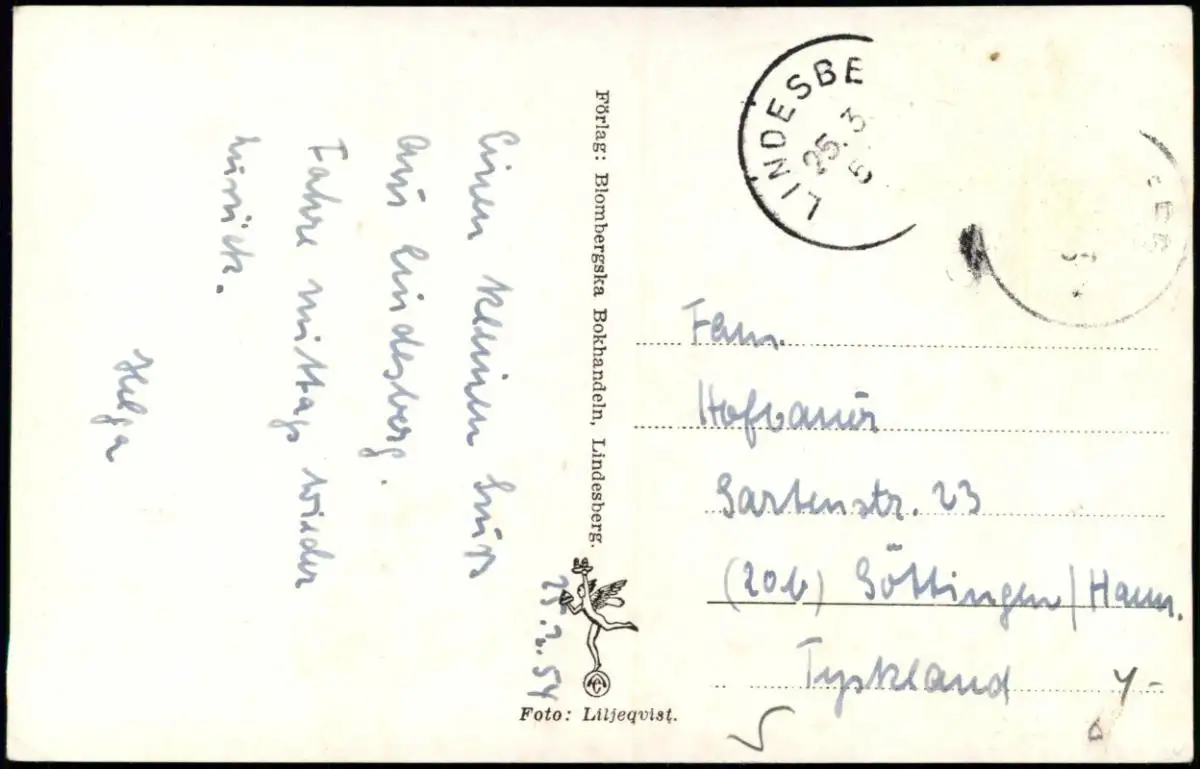 25.2.54
Einen kleinen Gruß
aus Lindesberg.
Fahre mittags wieder
zurück.
Helga
Förlag: Blombergska Bokhandeln, Lindesberg.
Foto: Liljeqvist.
LINDESBE
25.3
5
Fam.
Hofbauer
Gartenstr. 23
(20b) Göttingen/Hann.
Tyskland